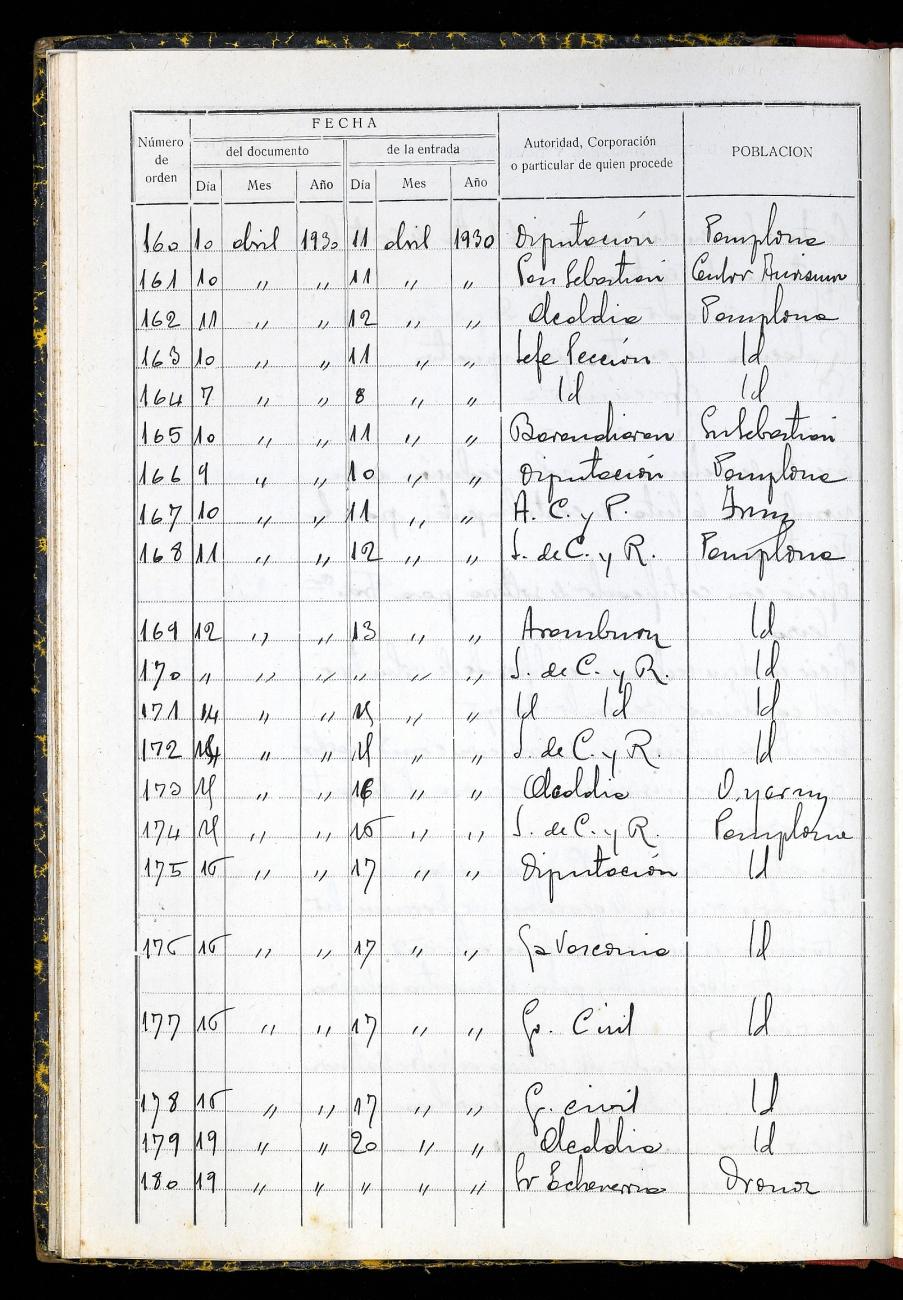 FECHA
Número de orden
del documento
de la entrada
Autoridad, Corporación o particular de quien procede
POBLACION
Día Mes Año Día Mes Año
160 10 abril 1930 11 abril 1930 Diputación Pamplona
161 10 " " 11 " " San Sebastian
162 11 " " 12 " " Alcaldia Pamplona
163 10 " " 11 " " Jefe Sección Id
164 7 " " 8 " " Id Id
165 10 " " 11 " " Barandiaran S. Sebastian
166 9 " " 10 " " Diputación Pamplona
167 10 " " 11 " " A. C. y P. Irun
168 11 " " 12 " " S. de C. y R. Pamplona
169 12 " " 13 " " Aramburu Id
170 " " " " " " S. de C. y R. Id
171 14 " " 15 " " Id Id Id
172 14 " " 15 " " S. de C. y R. Id
173 15 " " 16 " " Alcaldia Oyarzun
174 15 " " 16 " " S. de C. y R. Pamplona
175 16 " " 17 " " Diputación Id
176 16 " " 17 " " Vasconia Id
177 16 " " 17 " " Go. Civil Id
178 16 " " 17 " " G. civil Id
179 19 " " 20 " " Alcaldia Id
180 19 " " " " " Sr Echeverria